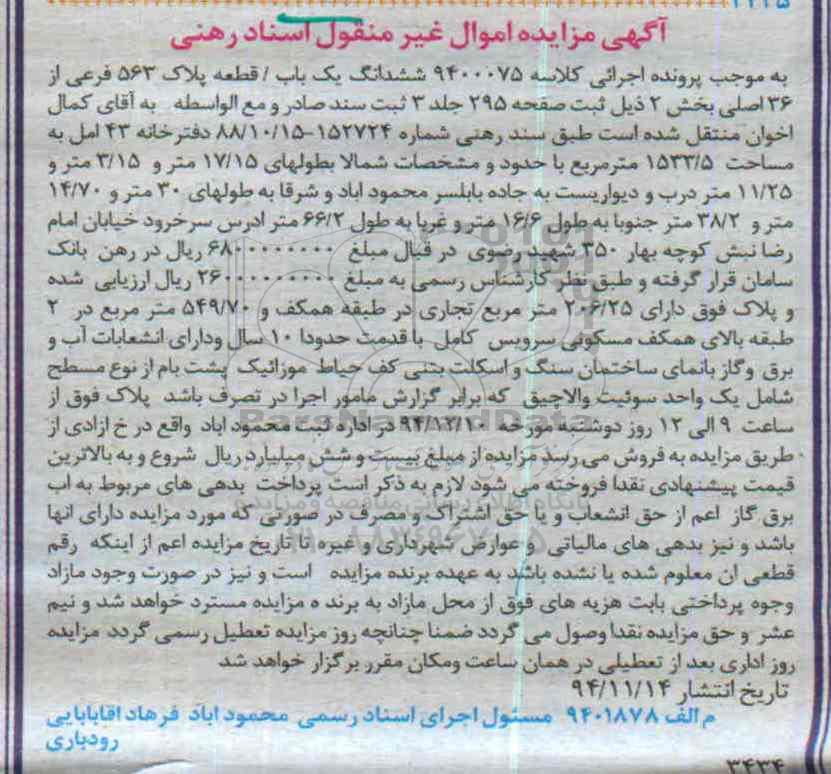 آگهی مزایده اموال غیر منقول اسناد رهنی
به موجب پرونده اجرائی کلاسه ۹۴۰۰۰۷۵ ششدانگ یک باب / قطعه پلاک ۵۶۳ فرعی از
۳۶ اصلی بخش ۲ ذیل ثبت صفحه ۲۹۵ جلد ۳ ثبت سند صادر و مع الواسطه به آقای کمال
اخوان منتقل شده است طبق سند رهنی شماره ۱۵۲۷۲۴-۸۸/۱۰/۱۵ دفترخانه ۴۳ امل به
مساحت ۱۵۳۳/۵ مترمربع با حدود و مشخصات شمالا بطولهای ۱۷/۱۵ متر و ۳/۱۵ متر و
۱۱/۲۵ متر درب و دیواریست به جاده بابلسر محمود اباد و شرقا به طولهای ۳۰ متر و ۱۴/۷۰
متر و ۳۸/۲ متر جنوبا به طول ۱۶/۶ متر و غربا به طول ۶۶/۲ متر ادرس سرخرود خیابان امام
رضا نبش کوچه بهار ۳۵۰ شهید رضوی در قبال مبلغ ۶۸۰۰۰۰۰۰۰۰ ریال در رهن بانک
سامان قرار گرفته و طبق نظر کارشناس رسمی به مبلغ ۲۶۰۰۰۰۰۰۰۰۰ ریال ارزیابی شده
و پلاک فوق دارای ۲۰۶/۲۵ متر مربع تجاری در طبقه همکف و ۵۴۹/۷۰ متر مربع در ۲
طبقه بالای همکف مسکونی سرویس کامل با قدمت حدودا ۱۰ سال ودارای انشعابات آب و
برق وگاز بانمای ساختمان سنگ و اسکلت بتنی کف حیاط موزائیک پشت بام از نوع مسطح
شامل یک واحد سوئیت والاچیق که برابر گزارش مامور اجرا در تصرف باشد پلاک فوق از
ساعت ۹ الی ۱۲ روز دوشنبه مورخه ۹۴/۱۲/۱۰ در اداره ثبت محمود اباد واقع در خ ازادی از
طریق مزایده به فروش می رسد مزایده از مبلغ بیست و شش میلیارد ریال شروع و به بالاترین
قیمت پیشنهادی نقدا فروخته می شود لازم به ذکر است پرداخت بدهی های مربوط به اب
برق گاز اعم از حق انشعاب و یا حق اشتراک و مصرف در صورتی که مورد مزایده دارای انها
باشد و نیز بدهی های مالیاتی و عوارض شهرداری و غیره تا تاریخ مزایده اعم از اینکه رقم
قطعی ان معلوم شده یا نشده باشد به عهده برنده مزایده است و نیز در صورت وجود مازاد
وجوه پرداختی بابت هزیه های فوق از محل مازاد به برند ه مزایده مسترد خواهد شد و نیم
عشر و حق مزایده نقدا وصول می گردد ضمنا چنانچه روز مزایده تعطیل رسمی گردد مزایده
روز اداری بعد از تعطیلی در همان ساعت ومکان مقرر برگزار خواهد شد
تاریخ انتشار ۹۴/۱۱/۱۴
م الف ۹۴۰۱۸۷۸ مسئول اجرای اسناد رسمی محمود اباد فرهاد اقابابایی
رودباری
۳۴۳۴
ParsNamadData